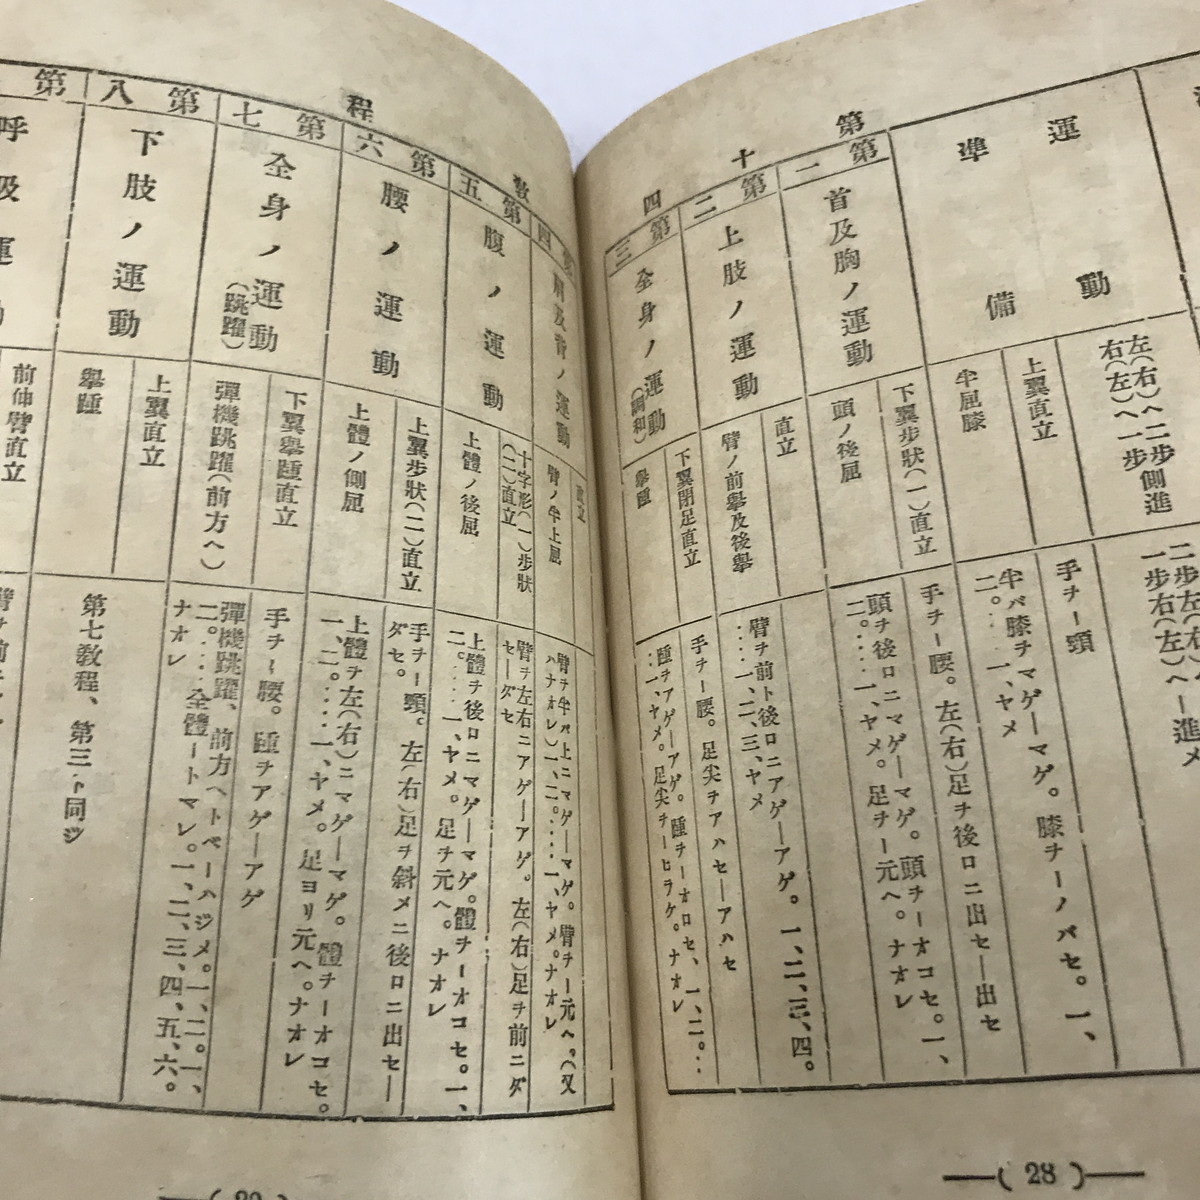 第十四
教程
運動
準備
左(右)へ二步側進
右(左)へ一步
二步左(右)へ
一步右(左)へ―進メ
上翼直立
手チ―頸
半屈膝
半バ膝チマゲ―マゲ。膝チ―ノバセ。一、
二。‥‥一、ヤメ
第一
首及胸ノ運動
下翼步狀(一)直立
手チ―腰。左(右)足ヲ後ロニ出セ―出セ
頭ノ後屈
頭ヲ後ロニマゲ―マゲ。頭チ―オコセ。一、
二。‥‥一、ヤメ。足チ―元へ。ナオレ
第二
上肢ノ運動
直立
臂ノ前擧及後擧
臂ヲ前ト後ロニアゲ―アゲ。一、二、三、四。
‥‥一、二、三、ヤメ
第三
全身ノ運動
(調和)
下翼閉足直立
手チ―腰。足尖ヲアハセ―アハセ
擧踵
踵ヲアゲ―アゲ。踵チ―オロセ、一、二。‥
‥一、ヤメ。足尖チ―ヒラケ。ナオレ
第四
肩及背ノ運動
直立
臂ノ半上屈
臂ヲ半バ上ニマゲ―マゲ。臂チ―元へ、(又
ハナオレ)一、二。‥‥一、ヤメ。ナオレ
第五
腹ノ運動
十字形(一)步狀
(二)直立
臂ヲ左右ニアゲ―アゲ。左(右)足ヲ前ニダ
セ―ダセ
上體ノ後屈
上體ヲ後ロニマゲ―マゲ。體チ―オコセ。一、
二。‥‥一、ヤメ。足チ元へ。ナオレ
第六
腰ノ運動
上翼步狀(二)直立
手チ―頸。左(右)足ヲ斜メニ後ロニ出セ―
ダセ。
上體ノ側屈
上體ヲ左(右)ニマゲ―マゲ。體チ―オコセ。
一、二。‥‥一、ヤメ。足ヨリ元へ。ナオレ
第七
全身ノ運動
(跳躍)
下翼擧踵直立
手チ―腰。踵ヲアゲ―アゲ
彈機跳躍(前方へ)
彈機跳躍、前方へトベ―ハジメ。一、二。一、
二。‥‥全體―トマレ。一、二、三、四、五、六。
ナオレ
第八
下肢ノ運動
上翼直立
擧踵
第七敎程、第三ト同ジ
第
呼吸運動
前伸臂直立
―( 28 )―